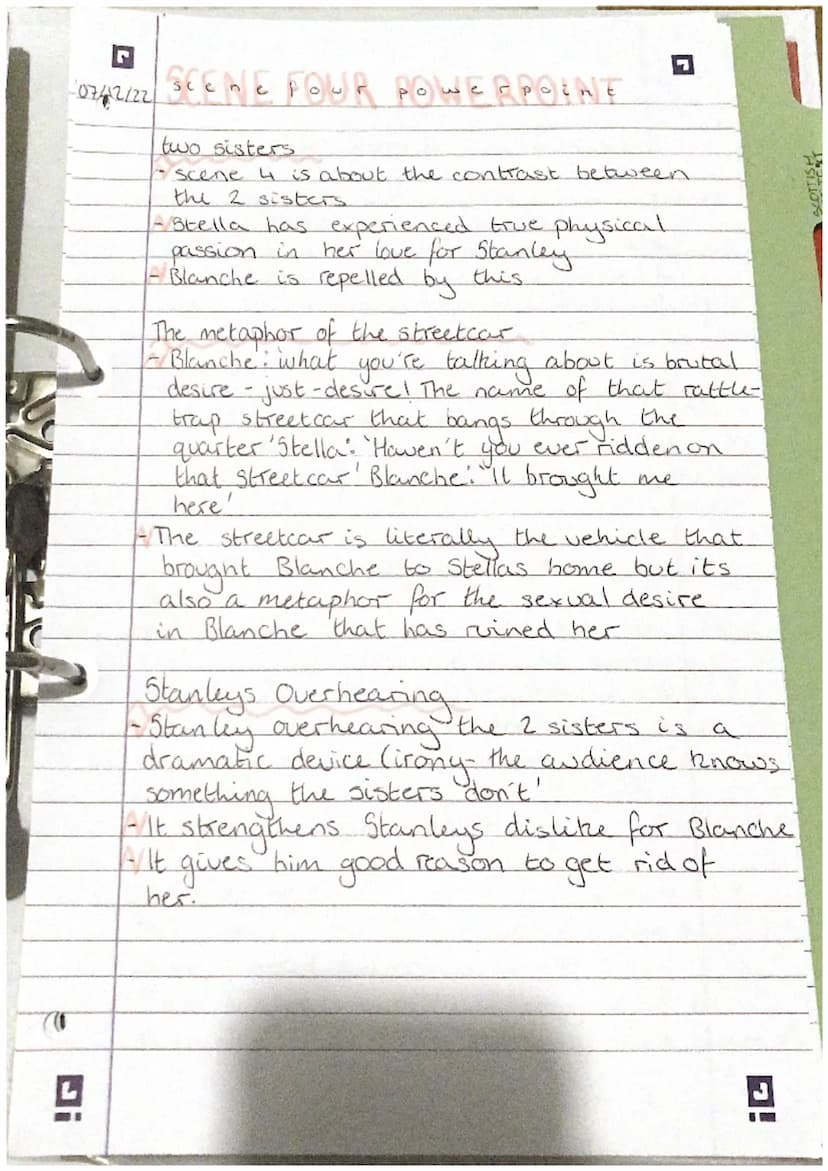 SCENE FOUR POWERPOINT
scene four powerpoint
07/12/22
two sisters
- scene 4 is about the contrast between
the 2 sisters
- Stella has experienced true physical
passion in her love for Stanley
- Blanche is repelled by this
The metaphor of the streetcar
- Blanche: 'what you're talking about is brutal
desire - just - desire! The name of that rattle-
trap streetcar that bangs through the
quarter' Stella: 'Haven't you ever ridden on
that streetcar' Blanche: 'It brought me
here'
- The streetcar is literally the vehicle that
brought Blanche to Stellas home but its
also a metaphor for the sexual desire
in Blanche that has ruined her
Stanleys Overhearing
- Stanley overhearing the 2 sisters is a
dramatic device (irony- the audience knows
something the sisters don't'
- It strengthens Stanleys dislike for Blanche
- It gives him good reason to get rid of
her.
SCOTTISH